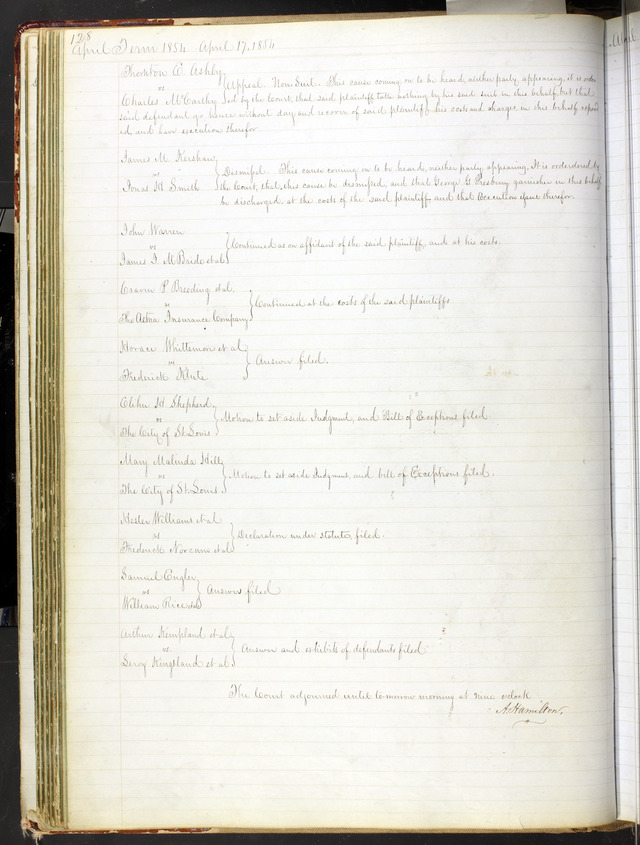 128
April Term 1854 April 17, 1854
Thornton C. Ashby
vs
Charles McCarthy
Appeal. Non Suit. This cause coming on to be heard, neither party appearing, it is order
ed by the Court, that said plaintiff take nothing by his said suit in this behalf, but that
said defendant go hence without day and recover of said plaintiff his costs and charges in this behalf expend
ed and have execution therefor
James M. Kershaw
vs
Jonas M Smith
Dismissed. This cause coming on to be heard, neither party appearing, It is orderdered by
the Court, that, this cause be dismissed, and that George G Presbury garnishee in this behalf
be discharged, at the costs of the said plaintiff and that Execution issue therefor.
John Warren
vs
James I. McBride et al
Continued as on affidavit of the said plaintiff, and at his costs.
Craven P Breeding et al.
vs
The Aetna Insurance Company
Continued at the costs of the said plaintiffs
Horace Whittemore et al
vs
Frederick Klute
Answer filed.
Elihu H Shepherd
vs
The City of St Louis
Motion to set aside Judgment, and Bill of Exceptions filed
Mary Malinda Hill
vs
The City of St. Louis
Motion to set aside Judgment, and bill of Exceptions filed.
Hester Williams et al
vs
Frederick et al
Declaration under statute, filed.
Samuel Engler
vs
William Rice
Answer filed
Arthur Kempland et al
vs.
Leroy Kingsland et al
Answer and exhibits of defendants filed
The Court adjourned until to-morrow morning at nine o'clock
A. Hamilton.